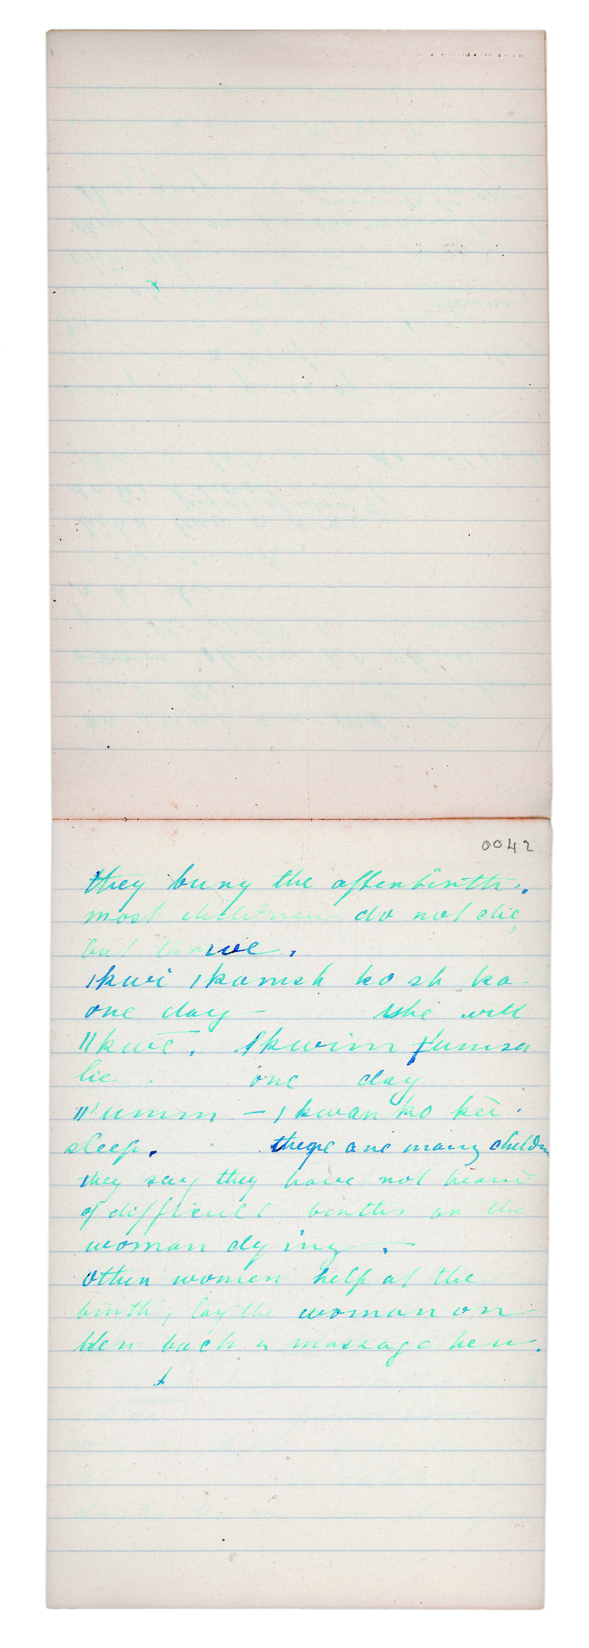 0042
they bury the afterbirth.
most children do not die,
but thrive.
|kwi |kamsh ko sh ka
one day - she will
||kwē. |kwim
lie. one day
||'umm - |kwan ko kēi.
sleep. there are many children
they say they have not heard
of difficult births or the
woman dying.
other women help at the
birth, lay the woman on
her back & massage her.